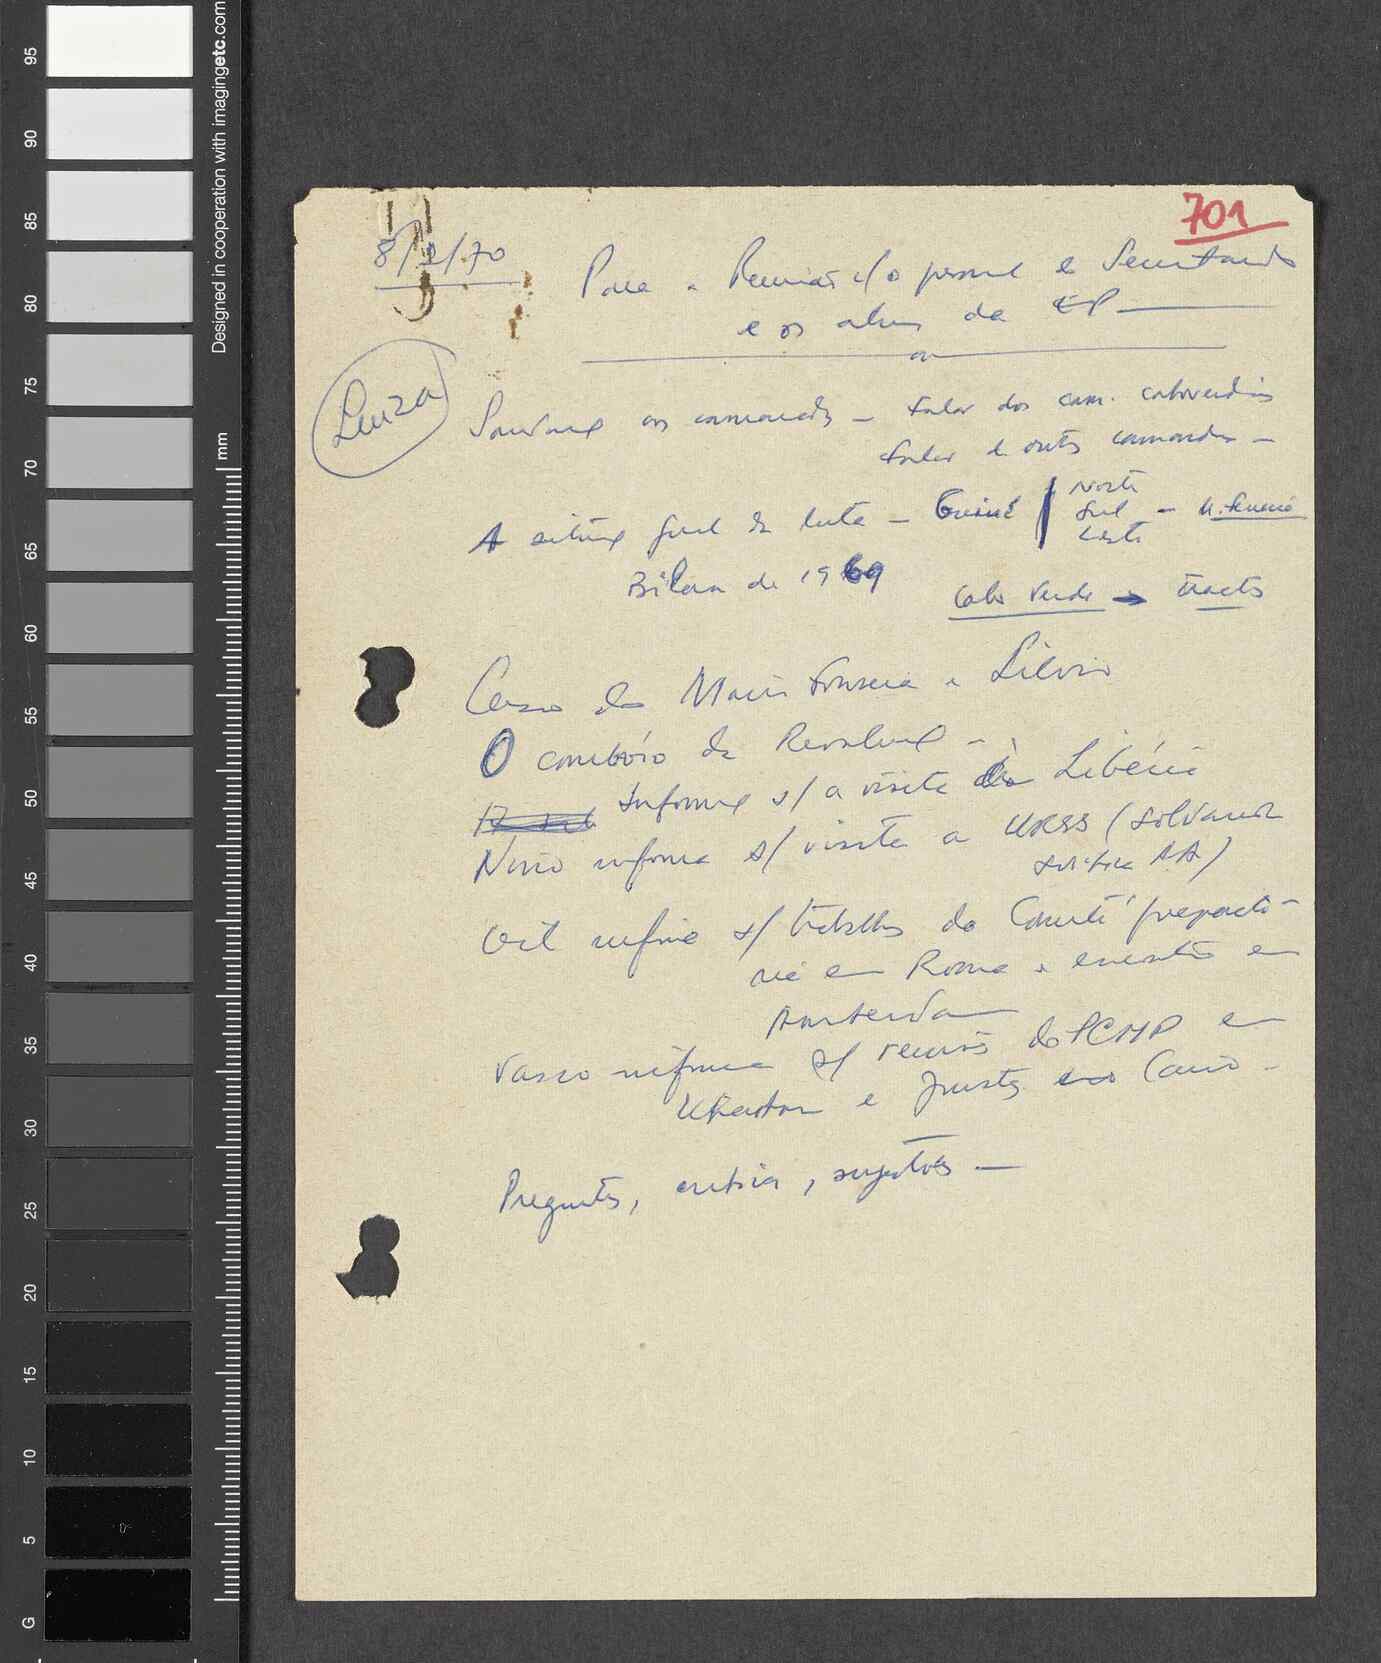 701
8/2/70
Para a Reunião c/o pessoal e Secretariado
e os alunos da EP
Luiza
Saudação aos camaradas — falar dos cam. caboverdianos
falar de outros camaradas —
A situação geral da luta — Guiné / Norte
Sul —
Leste
Bilan de 1969
Cabo Verde → tracts
Caso do Mário Fonseca e Silvio
O comboio da Revolução —
Informação s/ a visita à Libéria
Nino informa s/ visita a URSS (Solidaried.
AA)
Gil informa s/ trabalhos do Comité prepara-
em Roma e encontro em
Amsterdam
Vasco informa s/ reunião do PCMP em
Khartoum e Juristas Cairo —
Perguntas, críticas, sugestões —
95
90
85
80
75
70
65
60
55
50
45
40
35
30
25
20
15
10
5
G
mm
Designed in cooperation with imagingetc.com